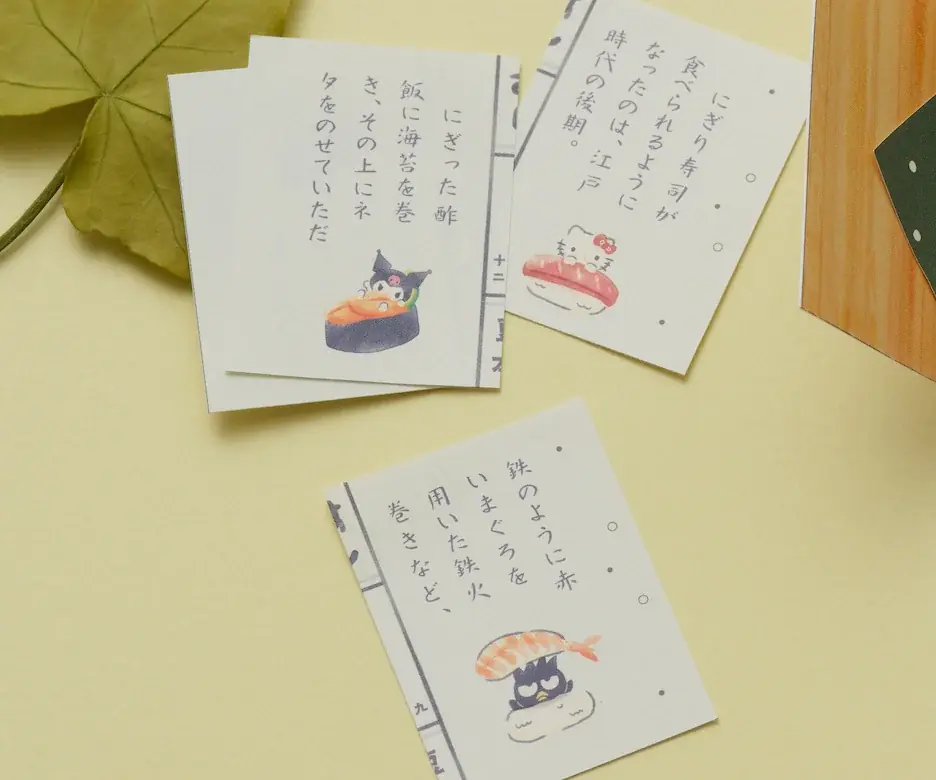 にぎった酢
飯に海苔を巻
き、その上にネ
タをのせていただ
十二
にぎり寿司が
食べられるように
なったのは、江戸
時代の後期。
鉄のように赤
いまぐろを
用いた鉄火
巻きなど、
九